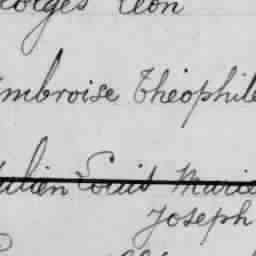 eorges Léon
mbroise Théophile
ulien Louis Marie
Joseph